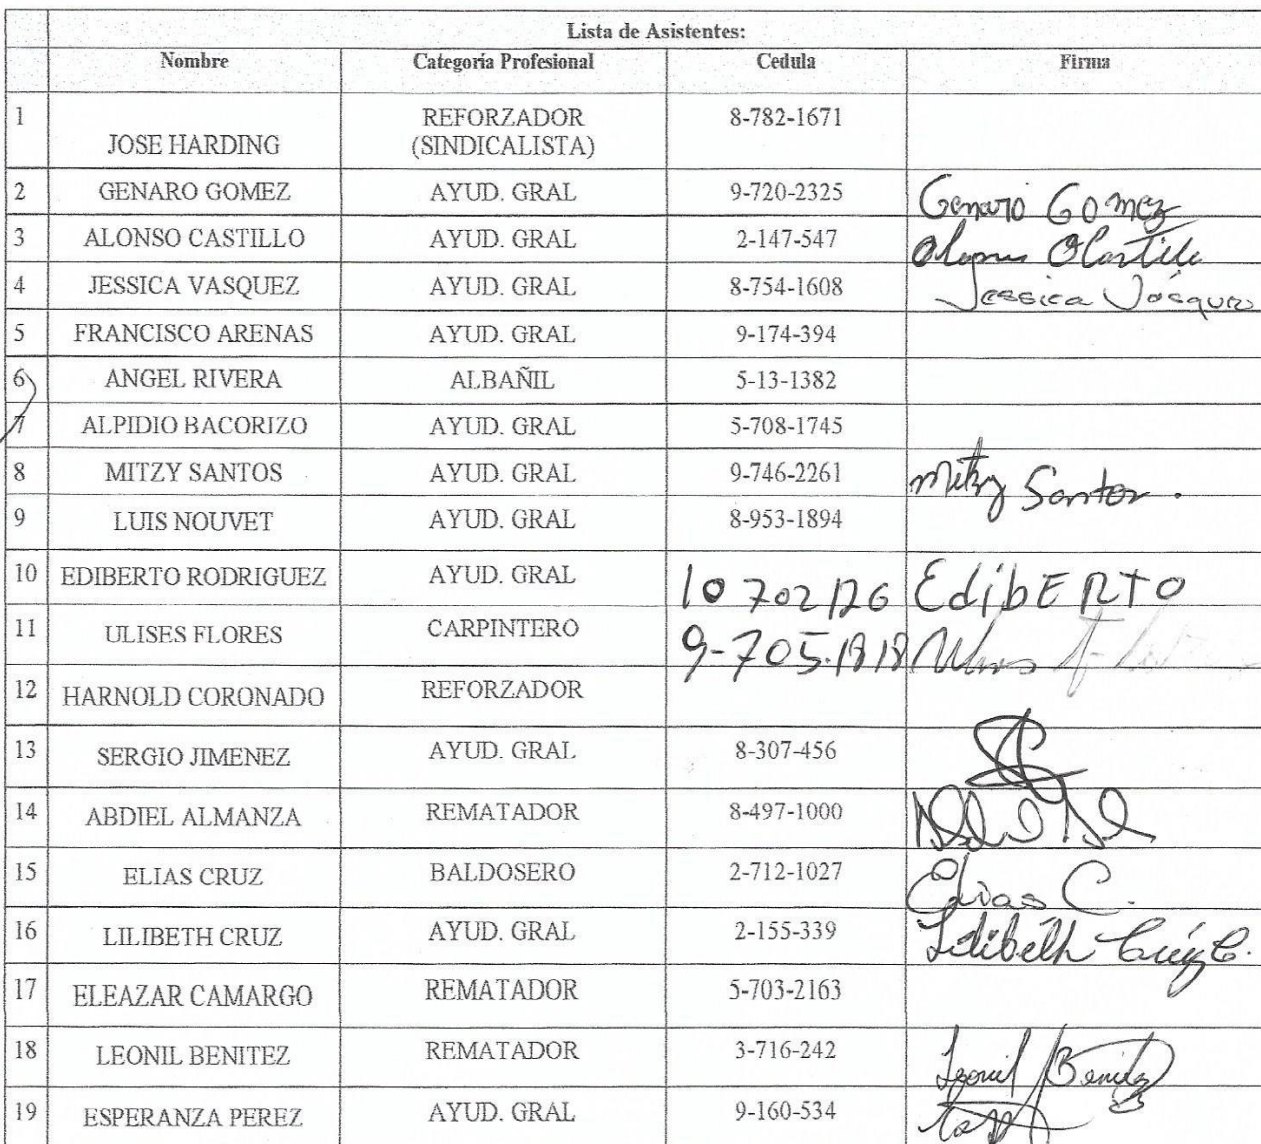 Lista de Asistentes:
Nombre Categoría Profesional Cedula Firma
1 JOSE HARDING REFORZADOR (SINDICALISTA) 8-782-1671
2 GENARO GOMEZ AYUD. GRAL 9-720-2325 Genaro GOmez
3 ALONSO CASTILLO AYUD. GRAL 2-147-547
4 JESSICA VASQUEZ AYUD. GRAL 8-754-1608 Jessica Vásquez
5 FRANCISCO ARENAS AYUD. GRAL 9-174-394
6 ANGEL RIVERA ALBAÑIL 5-13-1382
7 ALPIDIO BACORIZO AYUD. GRAL 5-708-1745
8 MITZY SANTOS AYUD. GRAL 9-746-2261 Mitzy Santos.
9 LUIS NOUVET AYUD. GRAL 8-953-1894
10 EDIBERTO RODRIGUEZ AYUD. GRAL 10 702 126 EdibERTO
11 ULISES FLORES CARPINTERO 9-705-1818
12 HARNOLD CORONADO REFORZADOR
13 SERGIO JIMENEZ AYUD. GRAL 8-307-456
14 ABDIEL ALMANZA REMATADOR 8-497-1000
15 ELIAS CRUZ BALDOSERO 2-712-1027 Elias C.
16 LILIBETH CRUZ AYUD. GRAL 2-155-339 Lilibeth Cruz C.
17 ELEAZAR CAMARGO REMATADOR 5-703-2163
18 LEONIL BENITEZ REMATADOR 3-716-242 Leonil Benitez
19 ESPERANZA PEREZ AYUD. GRAL 9-160-534